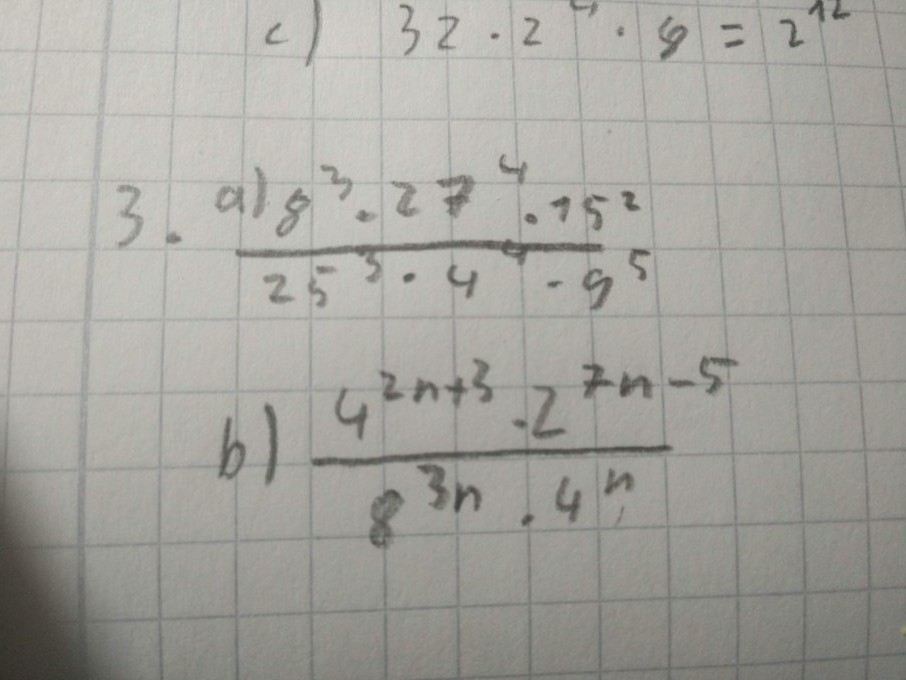 c) 32 · 2⁴ · 8 = 2¹²
3. a) 8³ · 27⁴ · 15²
25³ · 4⁴ · 9⁵
b) 4²ⁿ⁺³ · 2⁷ⁿ⁻⁵
8³ⁿ · 4ⁿ